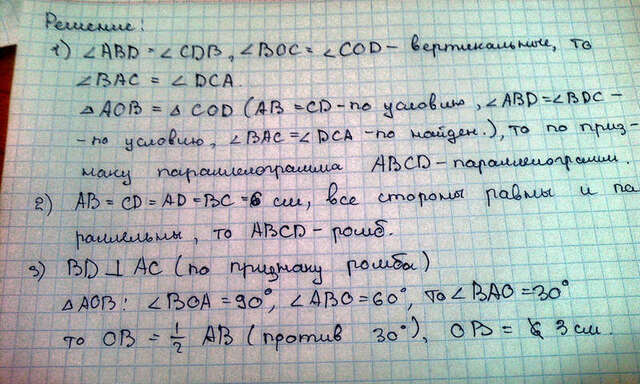 Решение:
1) ∠ABD = ∠CDB, ∠BOC = ∠COD - вертикальные, то
∠BAC = ∠DCA.
△AOB = △COD (AB = CD - по условию, ∠ABD = ∠BDC -
- по условию, ∠BAC = ∠DCA - по найден.), то по приз-
наку параллелограмма ABCD - параллелограмм.
2) AB = CD = AD = BC = 6 см, все стороны равны и па
раллельны, то ABCD - ромб.
3) BD ⊥ AC (по признаку ромба)
△AOB: ∠BOA = 90°, ∠ABO = 60°, то ∠BAO = 30°
то OB = 1/2 AB (против 30°), OB = 3 см.